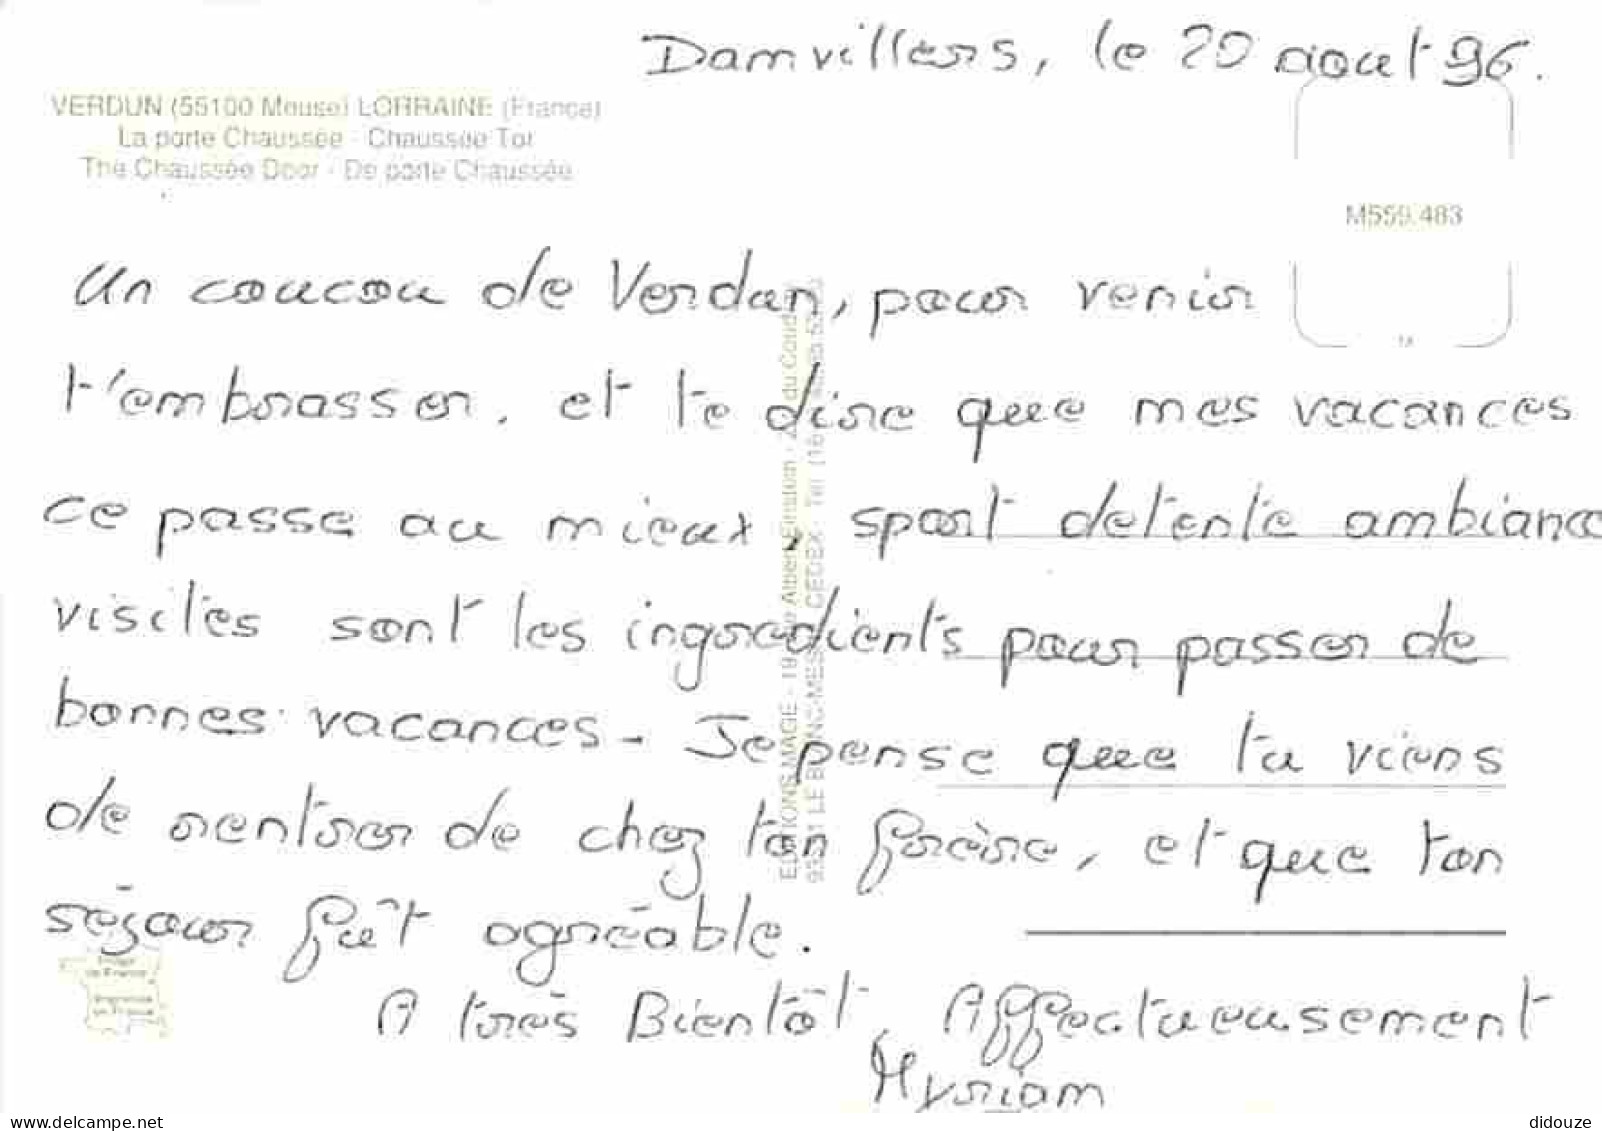 Damvillers, le 20 aout 96.
VERDUN (55100 Meuse) LORRAINE (France)
La porte Chaussée - Chaussée Tor
The Chaussée Door - De porte Chaussée
M559.483
Un coucou de Verdun, pour venir
t'embrasser. et te dire que mes vacances
ce passe au mieux, sport detente ambiance
visites sont les ingredients pour passer de
bonnes vacances - Je pense que tu viens
de rentrer de chez ton frère, et que ton
séjour fût agréable.
A très Bientôt, Affectueusement
Myriam
EDITIONS MAGE - Albert Einstein - du Coudray
LE BLANC-MESNIL CEDEX - Tél. (16
didouze